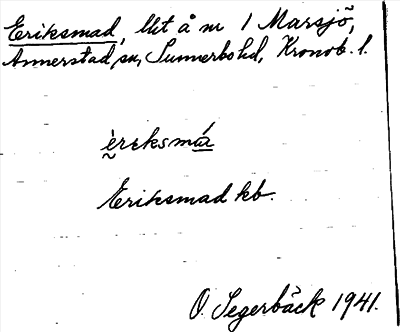 Eriksmad, lht å nr 1 Marsjö,
Annerstad sn, Sunnerbo hd, Kronob. l.
èreksmá
Eriksmad kb.
O. Segerbäck 1941.